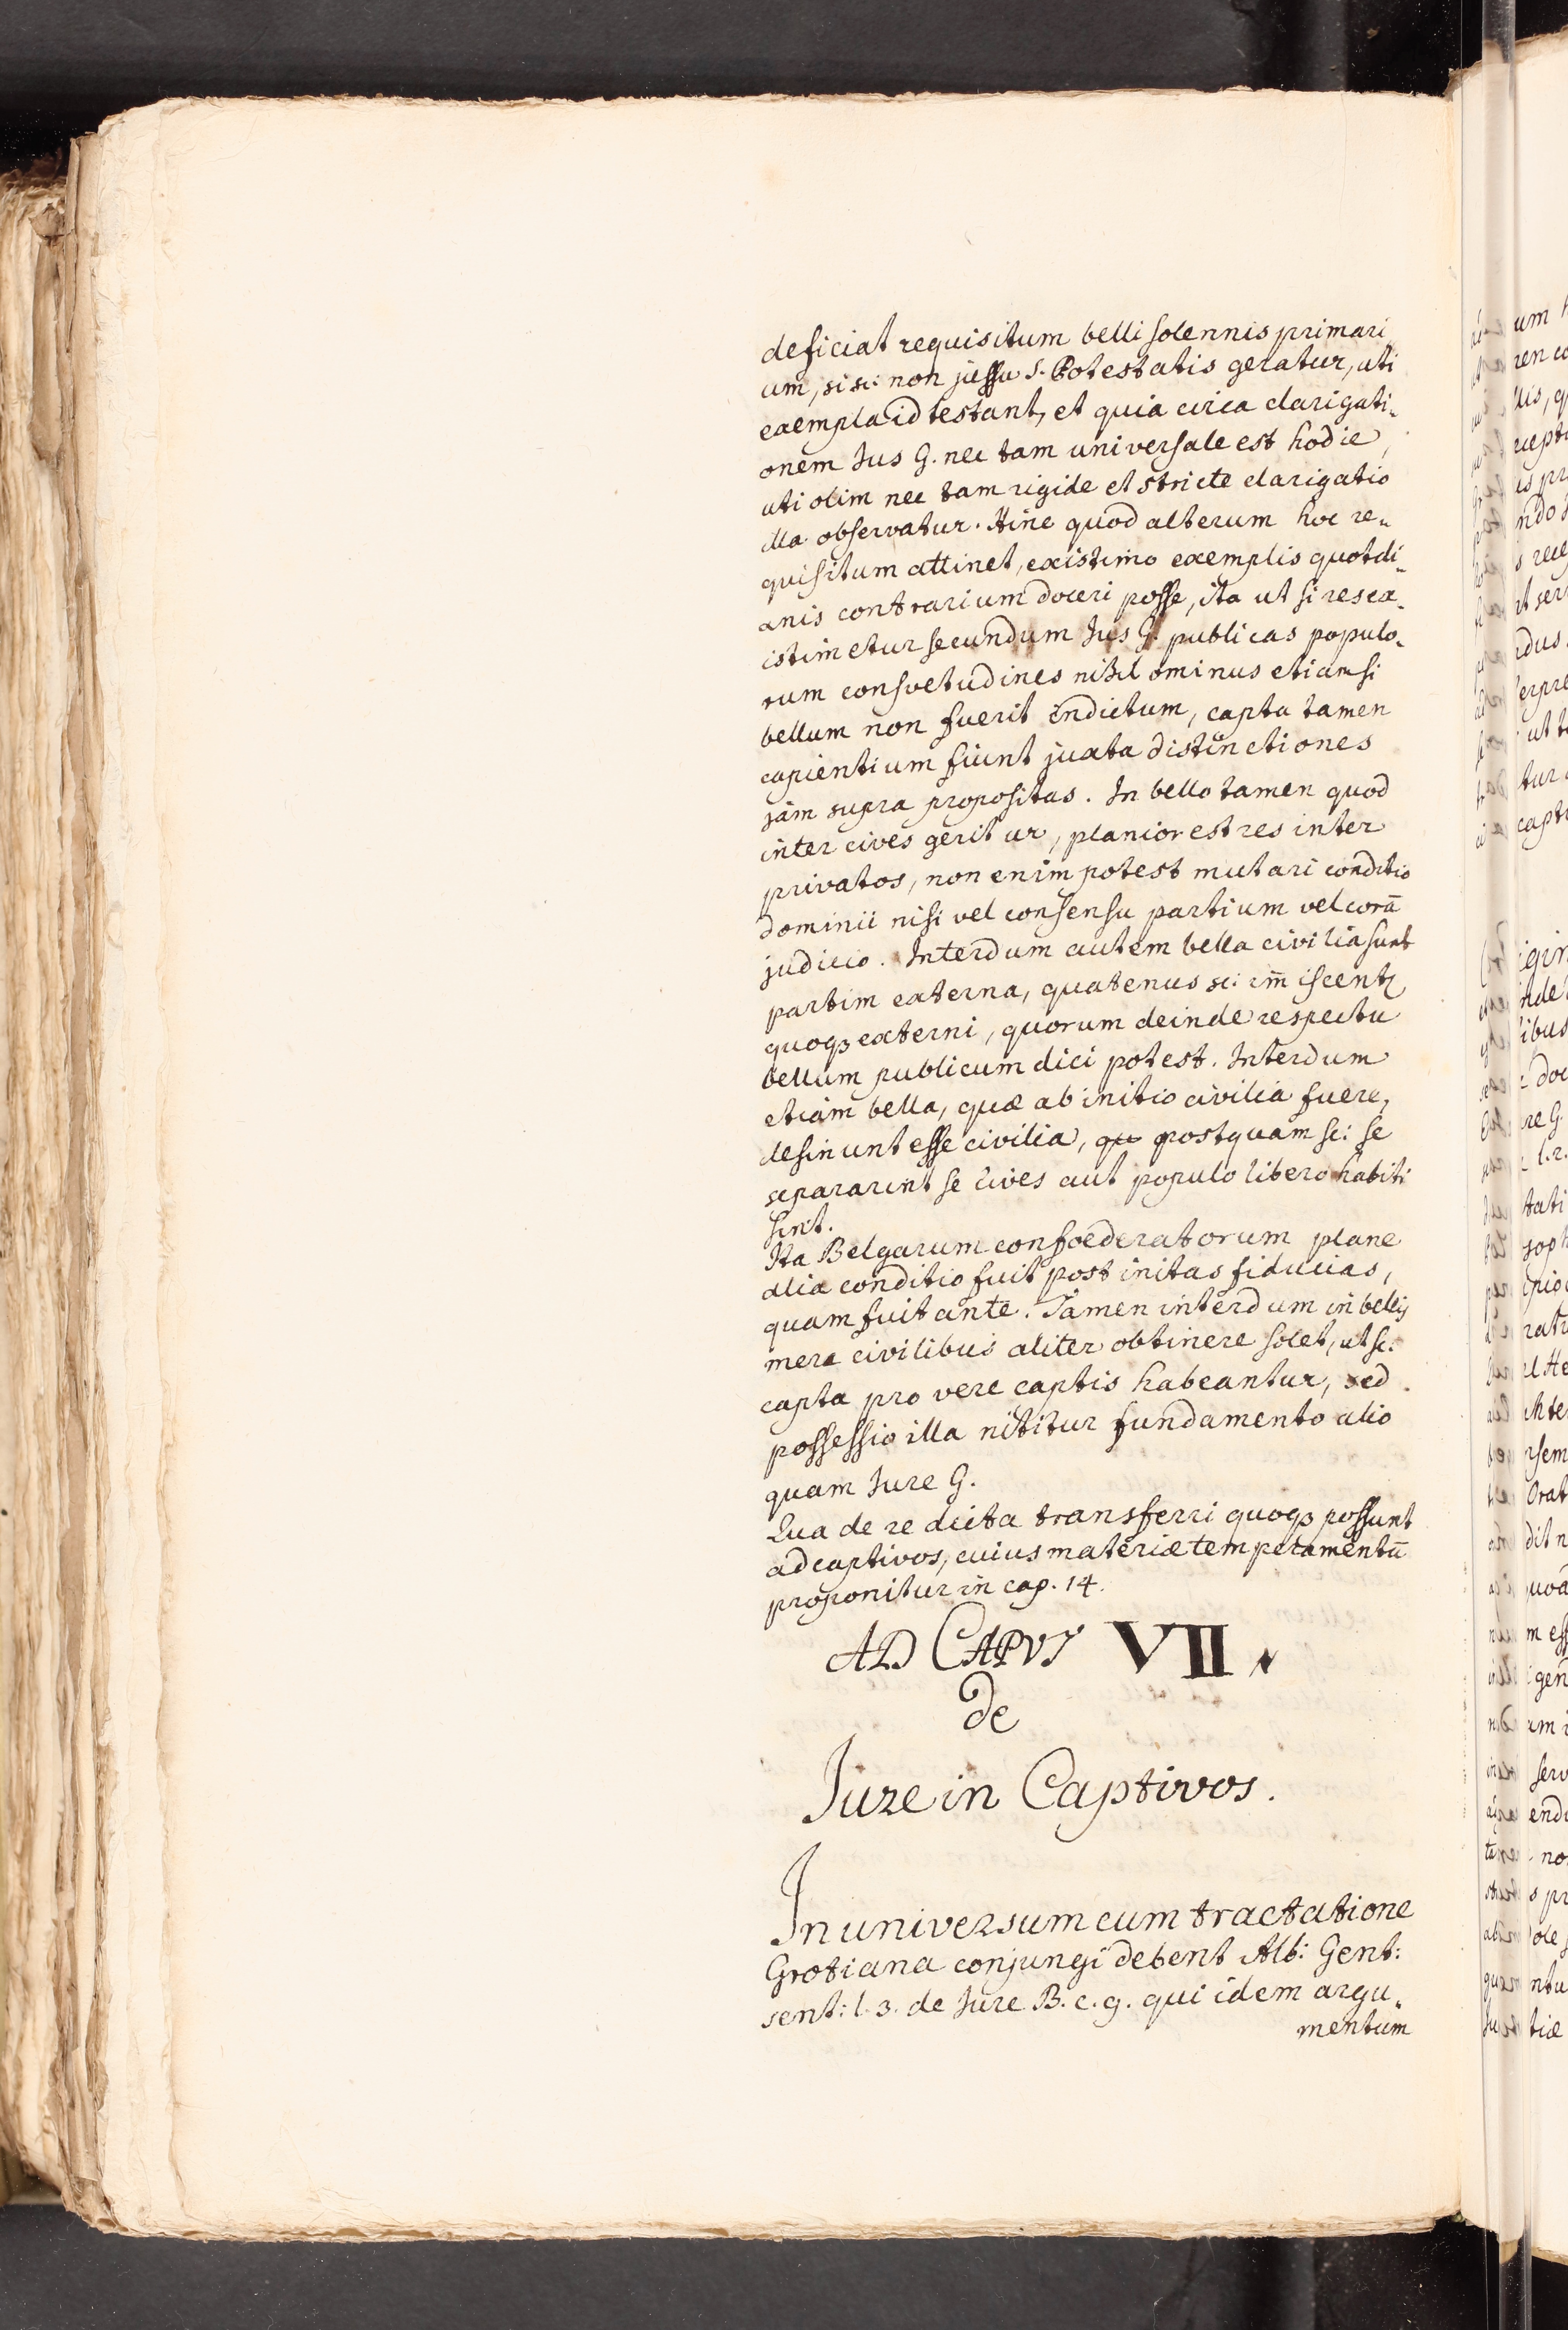 deficiat requisitum belli solennis primari
um, si sc: non jussu S. Potestatis geratur, uti
exempla id testant, et quia circa clarigati-
onem Jus G. nec tam universale est hodie,
uti olim nec tam rigide et stricte clarigatio
illa observatur. Hinc quod alterum hoc re-
quisitum attinet, existimo exemplis quotdi-
anis contrarium doceri posse, ita ut si res ex-
istimetur secundum Jus G. publicas populo-
rum consvetudines nihilominus etiamsi
bellum non fuerit indictum, capta tamen
capientium fiunt juxta distinctiones
jam supra propositas. In bello tamen quod
inter cives geritur, planior est res inter
privatos, non enim potest mutari conditio
dominii nisi vel consensu partium vel corā
judicio. Interdum autem bella civilia sunt
partim externa, quatenus sc: im̄iscentr
quoqз externi, quorum deinde respectu
bellum publicum dici potest. Interdum
etiam bella, quæ ab initio civilia fuere,
desinunt esse civilia, qu postquam sc: se
separarint se cives aut populo libero habiti
sint.
Ita Belgarum confoederatorum plane
alia conditio fuit post initas fiducias,
quam fuit ante. Tamen interdum in bellis
mere civilibus aliter obtinere solet, ut sc:
capta pro vere captis habeantur, sed
possessio illa nititur fundamento alio
quam Jure G.
Qua de re dicta transferri quoqз possunt
ad captivos, cuius materiæ temperamentū
proponitur in cap. 14.
AD CAPVT VII.
De
Jure in Captivos.
In universum cum tractatione
Grotiana conjungi debent Alb: Gent:
sent: l. 3. de Jure B. c. 9. qui idem argu-
mentum